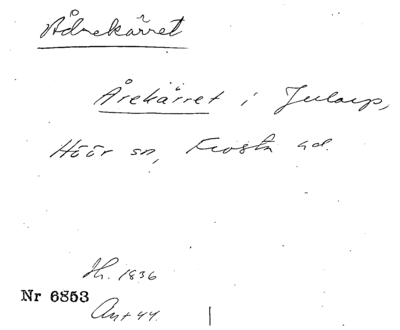 Ådnekärret
Årekärret i Jularp,
Höör sn, Frosta hd.
Jh. 1836
Nr 6853
Ant 44.